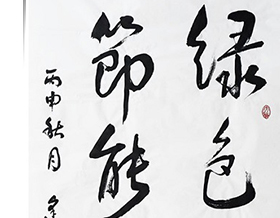 绿色
節能
丙申秋月